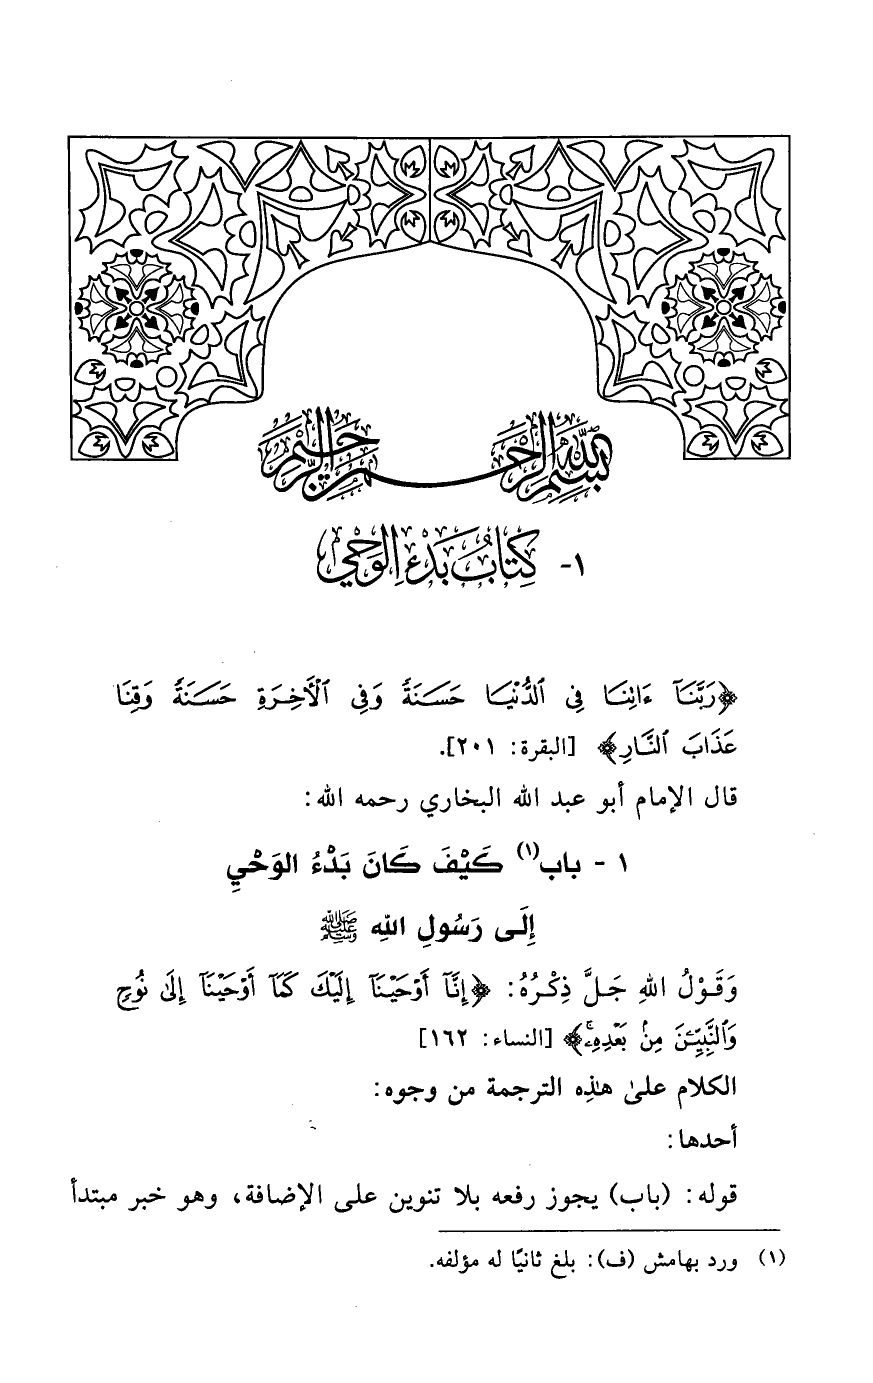 بسم الله الرحمن الرحيم
١- كِتَابُ بَدْءِ الوَحْيِ
﴿رَبَّنَآ ءَاتِنَا فِي ٱلدُّنْيَا حَسَنَةً وَفِي ٱلْأَخِرَةِ حَسَنَةً وَقِنَا
عَذَابَ ٱلنَّارِ﴾ [البقرة: ٢٠١].
قال الإمام أبو عبد الله البخاري رحمه الله:
١ - باب(١) كَيْفَ كَانَ بَدْءُ الوَحْيِ
إِلَى رَسُولِ اللهِ ﷺ
وَقَوْلُ اللهِ جَلَّ ذِكْرُهُ: ﴿إِنَّآ أَوْحَيْنَآ إِلَيْكَ كَمَآ أَوْحَيْنَآ إِلَىٰ نُوحٍ
وَٱلنَّبِيِّـۧنَ مِنۢ بَعْدِهِۦۚ﴾ [النساء: ١٦٢]
الكلام علىٰ هٰذِه الترجمة من وجوه:
أحدها:
قوله: (باب) يجوز رفعه بلا تنوين على الإضافة، وهو خبر مبتدأ
(١) ورد بهامش (ف): بلغ ثانيًا له مؤلفه.